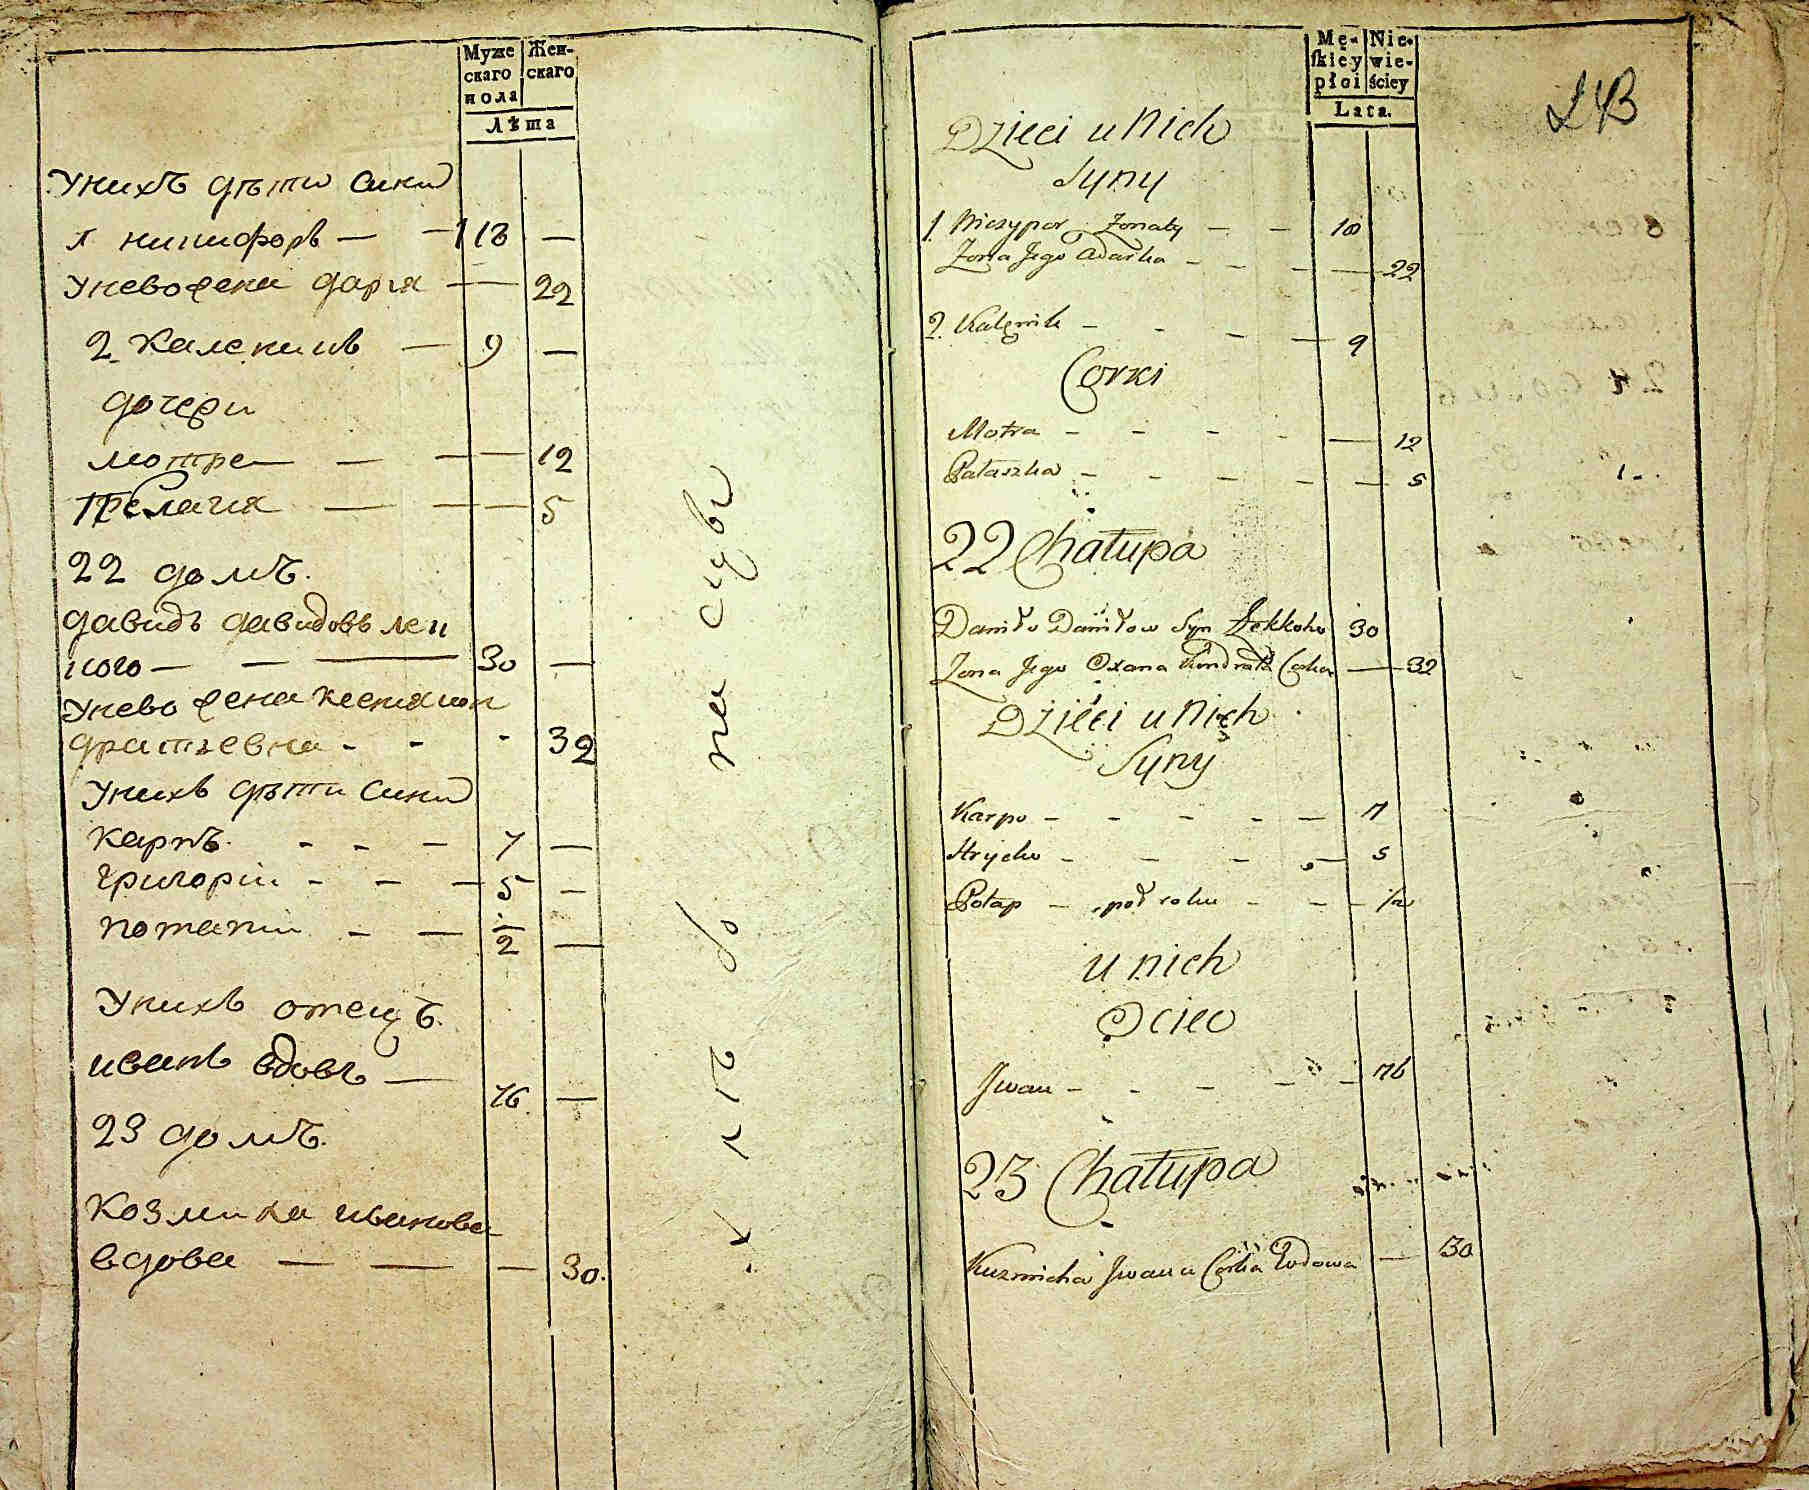 Муже
скаго
пола
Жен-
скаго
Лѣта
Унихъ дѣти сини
1 никифоръ — — 18 —
Унево жена дарїя — — 22
2 каленикъ — 9 —
дочери
мотря — — — 12
Пелагия — — — 5
22 домъ.
давидъ давидовъ леп
кого — — — 30 —
Унево жена ксения кон
дратьевна - - - 32
Унихъ дѣти сини
карпъ. - - - 7 —
григорїи - - - 5 —
потапїи - — 1/2 —
Унихъ отецъ.
иванъ вдовъ — 76 —
23 домъ.
козмиха иванова
вдова — — — 30.
Mę-
skiey
płci
Nie-
wie-
ściey
Lata.
Dzieci u Nich
Syny
1. Niczypor Zonaty - - 18
Zona Jego Adarka - - - — 22
2. Kalęnik - - - — 9
Corki
Motra - - - - — 12
Pałaszka - - - - - — 5
22 Chałupa
Daniło Daniłow Syn 30
Zona Jego Oxana Kondrata Corka — 32
Dzieci u Nich
Syny
Karpo - - - - — 7
Hryćko - - - — 5
Potap - poł roku - - - 1/2
u nich
Ociec
Jwan - - - - - 76
23 Chałupa
Kuzmicha Jwana Corka Wdowa — 30